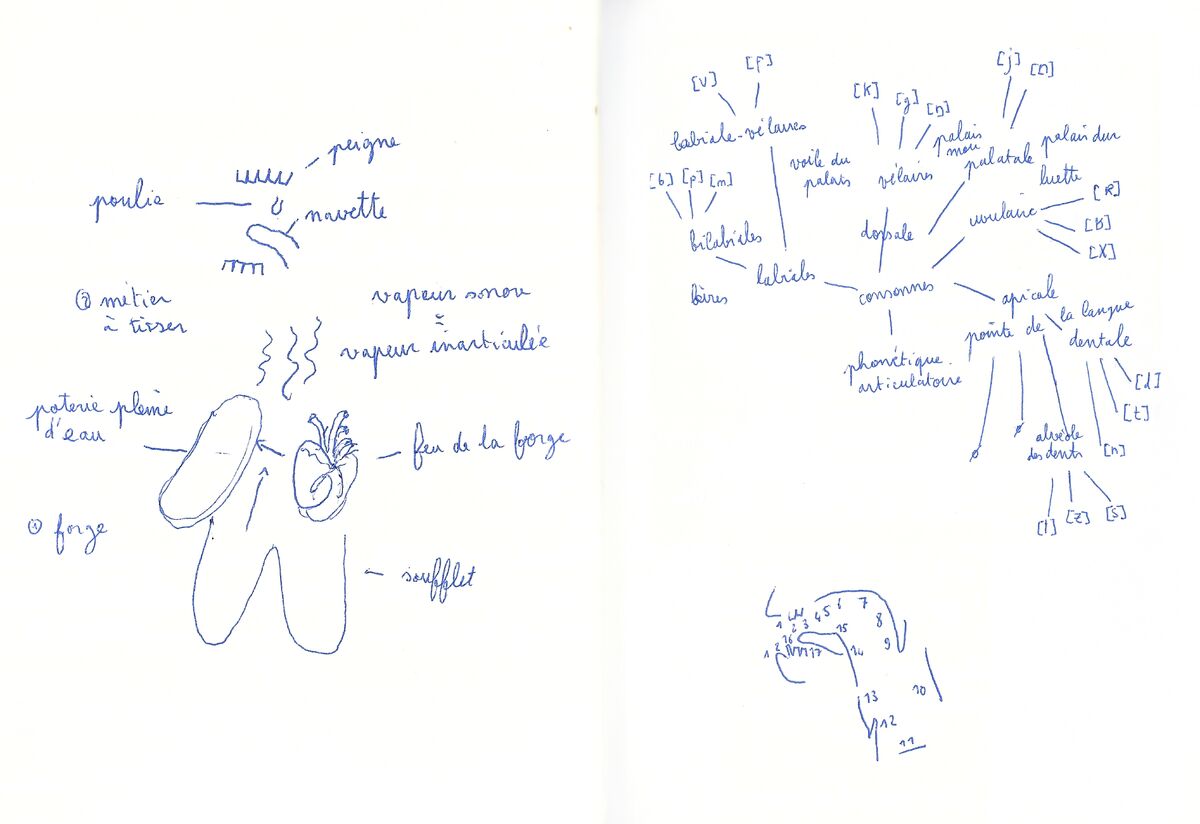 peigne
poulie
navette
② métier
à tisser
vapeur sonore
=
vapeur inarticulée
poterie pleine
d'eau
feu de la forge
① forge
soufflet
[v] [f]
labiale-vélaires
[b] [p] [m]
bilabiales
labiales
lèvres
voile du
palais
[k] [g] [ŋ]
vélaires
palais
mou
dorsale
[j] [ɲ]
palatale
palais dur
luette
uvulaire
[R]
[ʁ]
[X]
consonnes
phonétique
articulatoire
apicale
pointe de la langue
dentale
[d]
[t]
[n]
alvéole
des dents
[l] [z] [s]
1 2 3 4 5 6 7
8
9
10
11
12
13
14
15
16
17
1 2